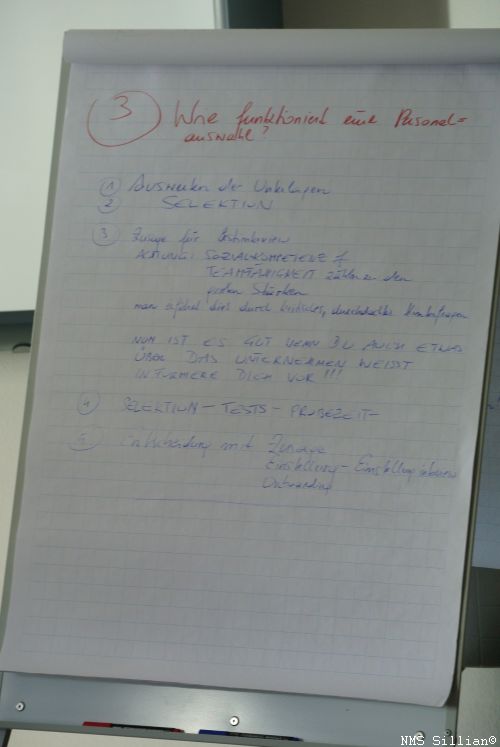 3 Wie funktioniert eine Personal=
auswahl?
1 Auswerten der Unterlagen
2 SELEKTION
3 Zusage für Erstinterview
ACHTUNG: SOZIALKOMPETENZ +
TEAMFÄHIGKEIT zählen zu den
großen Stärken
man erfährt dies durch kritisches, durchdachtes
NUN IST ES GUT WENN DU AUCH ETWAS
ÜBER DAS UNTERNEHMEN WEISST
INFORMIERE DICH VOR!!!
4 SELEKTION - TESTS - PROBEZEIT -
5 Entscheidung mit Zusage
Einstellung - Einstellung
Onboarding
NMS Sillian©